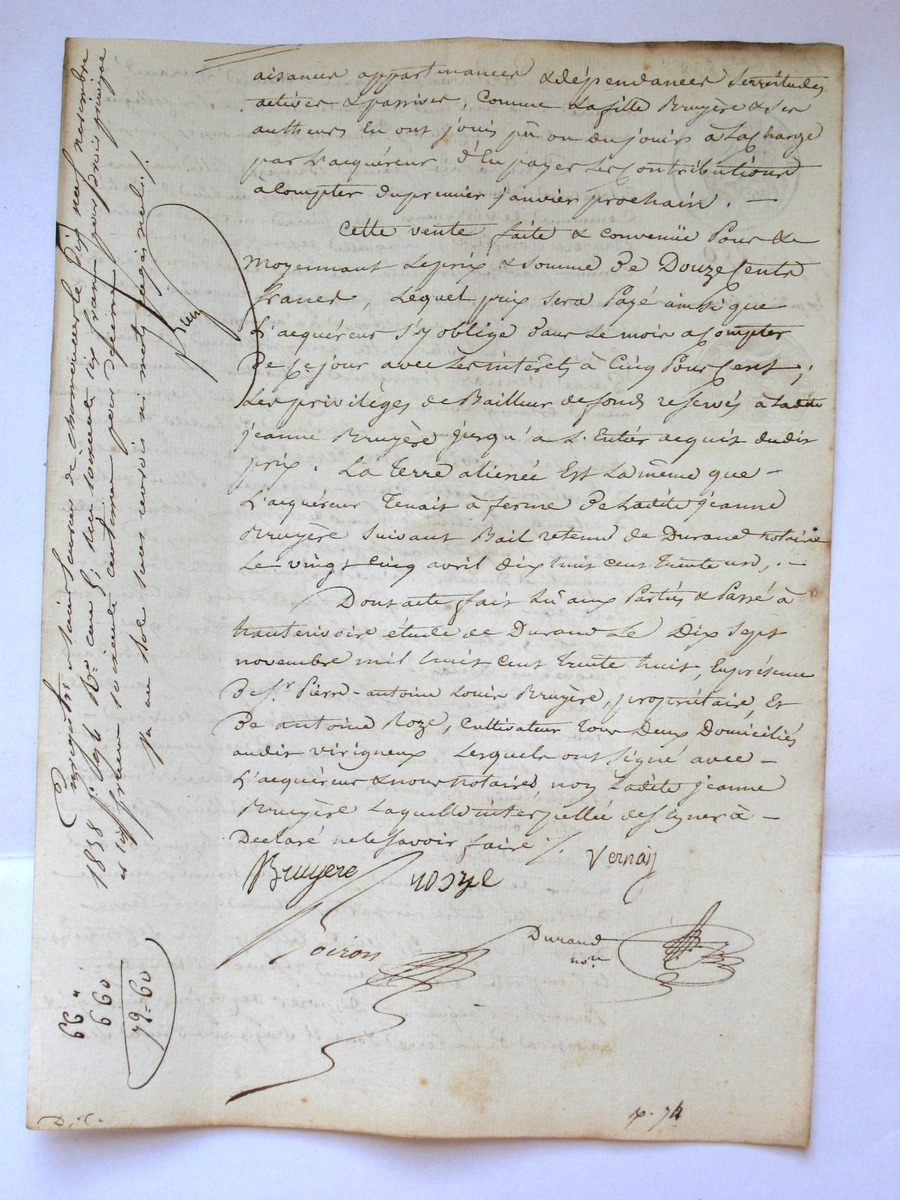 aisances appartenances & dépendances servitudes
actives & passives, Comme La fille Bruyère & Ses
autheurs En ont jouis pû ou du jouir à La Charge
par L'acquéreur d'En payer Les Contributions
a Compter du premier janvier prochain. —
Cette vente faite & convenüe Pour &
Moyennant Le prix & Somme De Douze Cents
francs, Lequel prix sera Payé ainsi que
L'acquéreur S'y oblige Dans Le mois a Compter
De Ce jour avec Les intérêts à Cinq Pour Cent,
Les privilèges de Bailleur de fonds reservés à Ladite
jeanne Bruyère jusqu'a L'Entier acquit dudit
prix. La Terre alienée Est La même que —
L'acquéreur Tenait à ferme De Ladite jeanne
Bruyère Suivant Bail retenu de Durand notaire
Le vingt Cinq avril Dix huit Cent Trente
Dont acte fait Lû aux Parties & Passé à
hauterivoire étude de Durand Le Dix Sept
novembre mil huit Cent Trente huit, En présence
De Sr. Pierre-antoine Louis Bruyère, propriétaire, Et
De antoine Roze, Cultivateur Tous Deux Domiciliés
audit virigneux Lesquels ont Signé avec —
L'acquéreur & nous notaires, non Ladite jeanne
Bruyère Laquelle interpellée de Signer à —
Declaré ne le Savoir faire ./.
Vernay
Bruyere roze
Poiron
Durand
nore
Enregistré à Saint Laurent de chamousset le dix neuf novembre
1838 fo. 196 Ro. case
et six francs soixante centimes pour decime
sol sans renvoi ni mots
66 "
6 60
72=60